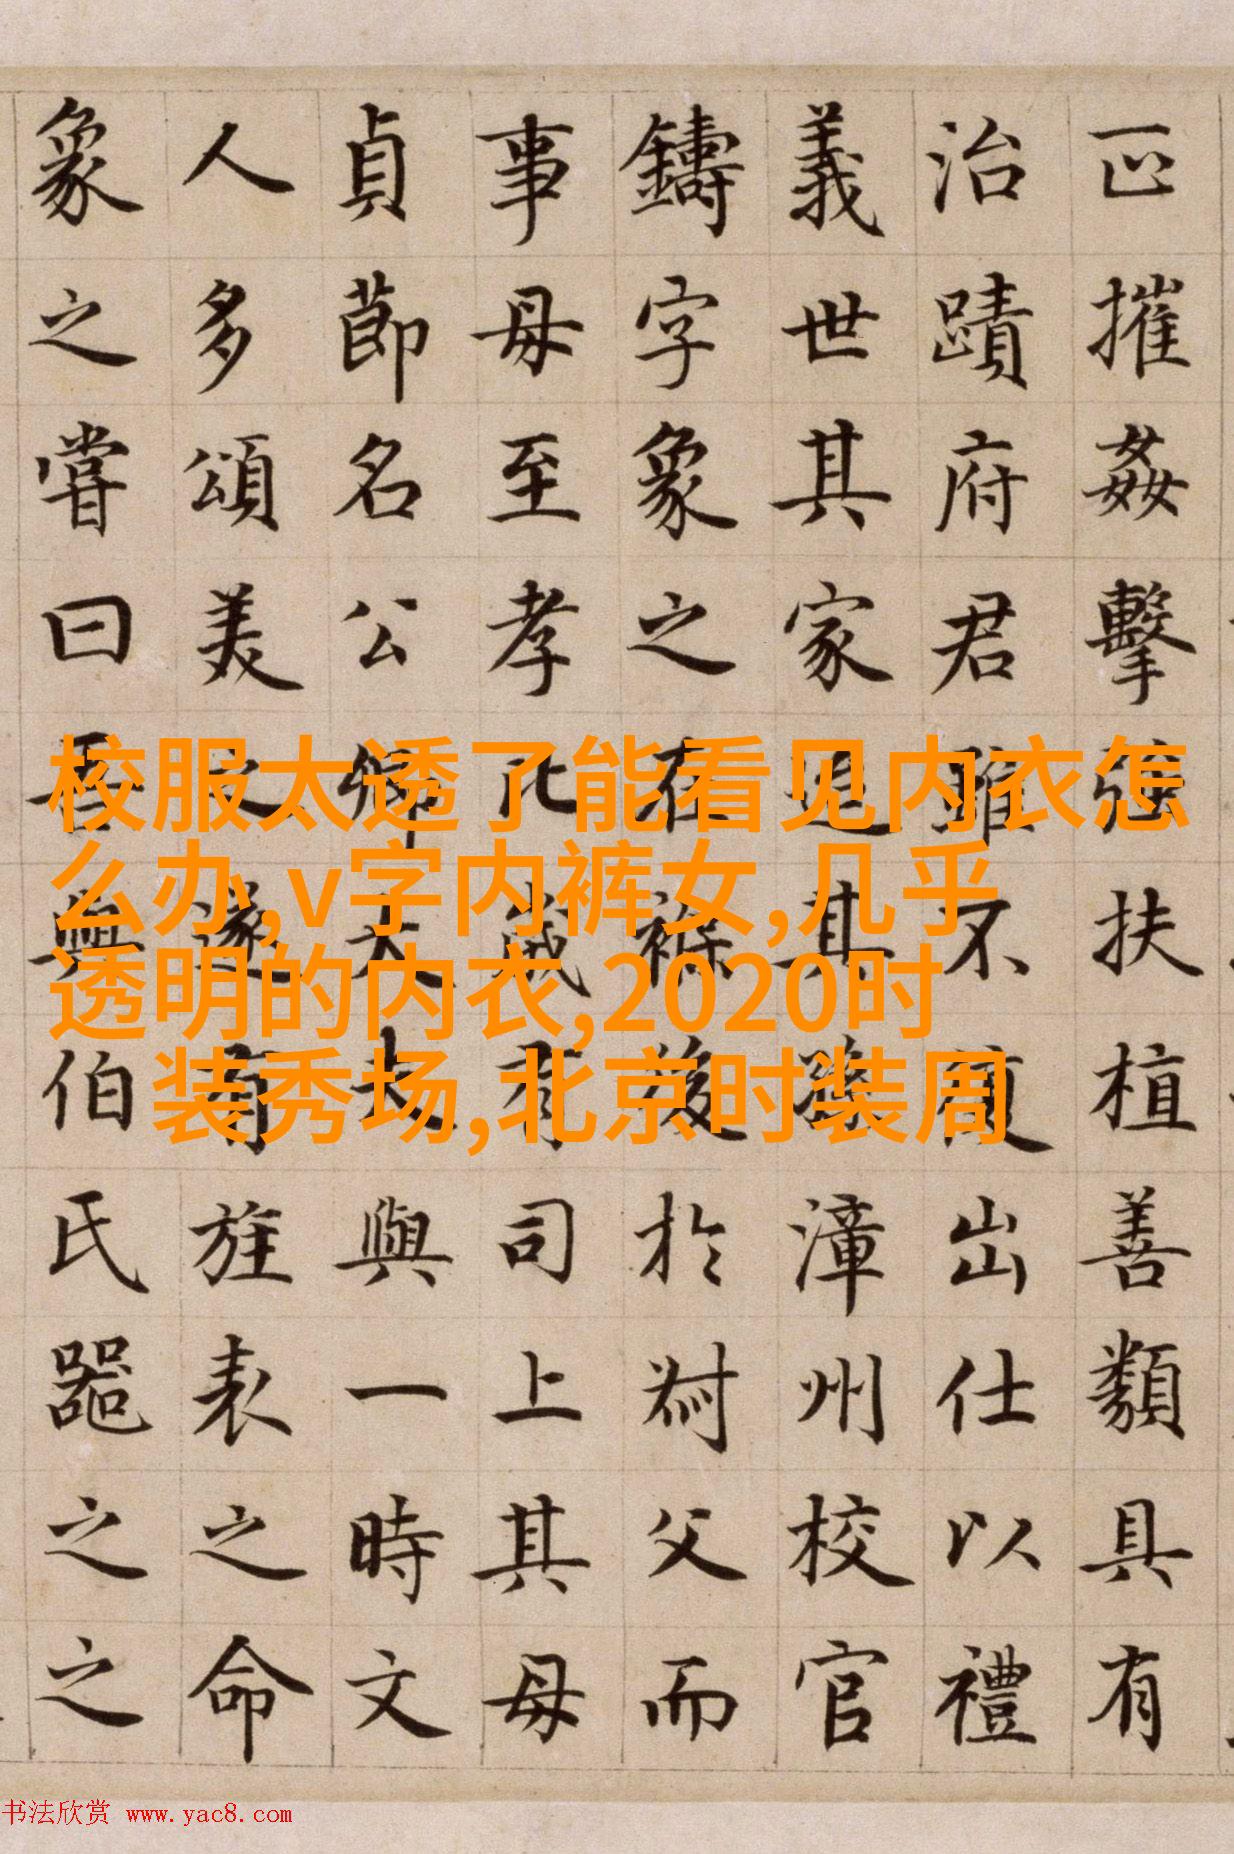 摧姦擊強扶植善類具有
治蹟府君雖不復出仕以禮
義世其家迨其漳州校官
鑄字象之在褓後於父而
事母至孝比歲有司上其母
貞節名公卿大夫與一時文
人多頌美之遂有旌表之命
象之嘗曰吾與伯氏器之之
校服太透了能看见内衣怎
么办,v字内裤女,几乎
透明的内衣,2020时
装秀场,北京时装周
书法欣赏 www.yac8.com